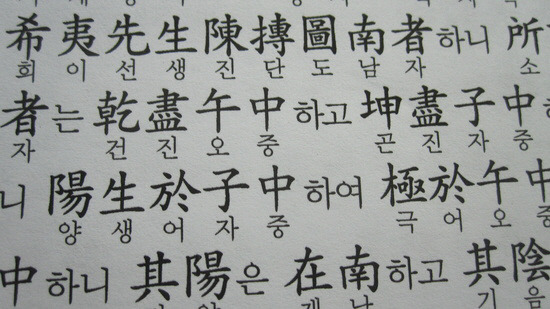 希夷先生陳摶圖南者하니 所
희이선생진단도남자 소
者는 乾盡午中하고 坤盡子中
자 건진오중 곤진자중
니 陽生於子中하여 極於午中
양생어자중 극어오중
中하니 其陽은 在南하고 其陰
기음